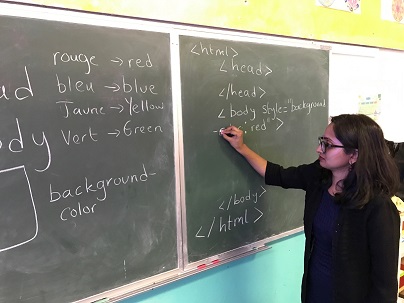 ad
ody
rouge → red
bleu → blue
Jaune → Yellow
Vert → Green
background-
color
<html>
<head>
</head>
<body style="background
: red">
</body>
</html>